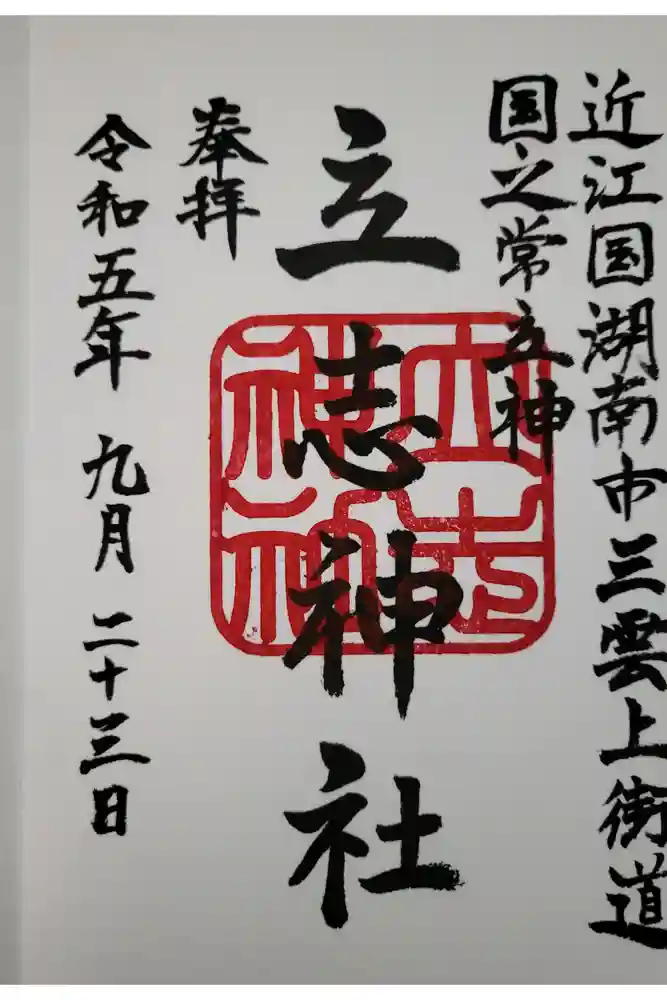 近江国湖南市三雲上街道
国之常立神
立志神社
奉拝
令和五年 九月 二十三日
立志神社